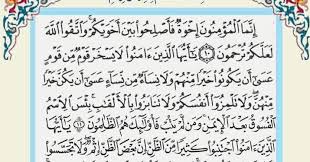 إِنَّمَا ٱلْمُؤْمِنُونَ إِخْوَةٌ فَأَصْلِحُوا۟ بَيْنَ أَخَوَيْكُمْ وَٱتَّقُوا۟ ٱللَّهَ
لَعَلَّكُمْ تُرْحَمُونَ ١٠ يَٰٓأَيُّهَا ٱلَّذِينَ ءَامَنُوا۟ لَا يَسْخَرْ قَوْمٌ مِّن قَوْمٍ
عَسَىٰٓ أَن يَكُونُوا۟ خَيْرًا مِّنْهُمْ وَلَا نِسَآءٌ مِّن نِّسَآءٍ عَسَىٰٓ أَن يَكُنَّ خَيْرًا
مِّنْهُنَّ وَلَا تَلْمِزُوٓا۟ أَنفُسَكُمْ وَلَا تَنَابَزُوا۟ بِٱلْأَلْقَٰبِ بِئْسَ ٱلِٱسْمُ
ٱلْفُسُوقُ بَعْدَ ٱلْإِيمَٰنِ وَمَن لَّمْ يَتُبْ فَأُو۟لَٰٓئِكَ هُمُ ٱلظَّٰلِمُونَ ١١ يَٰٓأَيُّهَا
ٱلَّذِينَ ءَامَنُوا۟ ٱجْتَنِبُوا۟ كَثِيرًا مِّنَ ٱلظَّنِّ إِنَّ بَعْضَ ٱلظَّنِّ إِثْمٌ وَلَا تَجَسَّسُوا۟